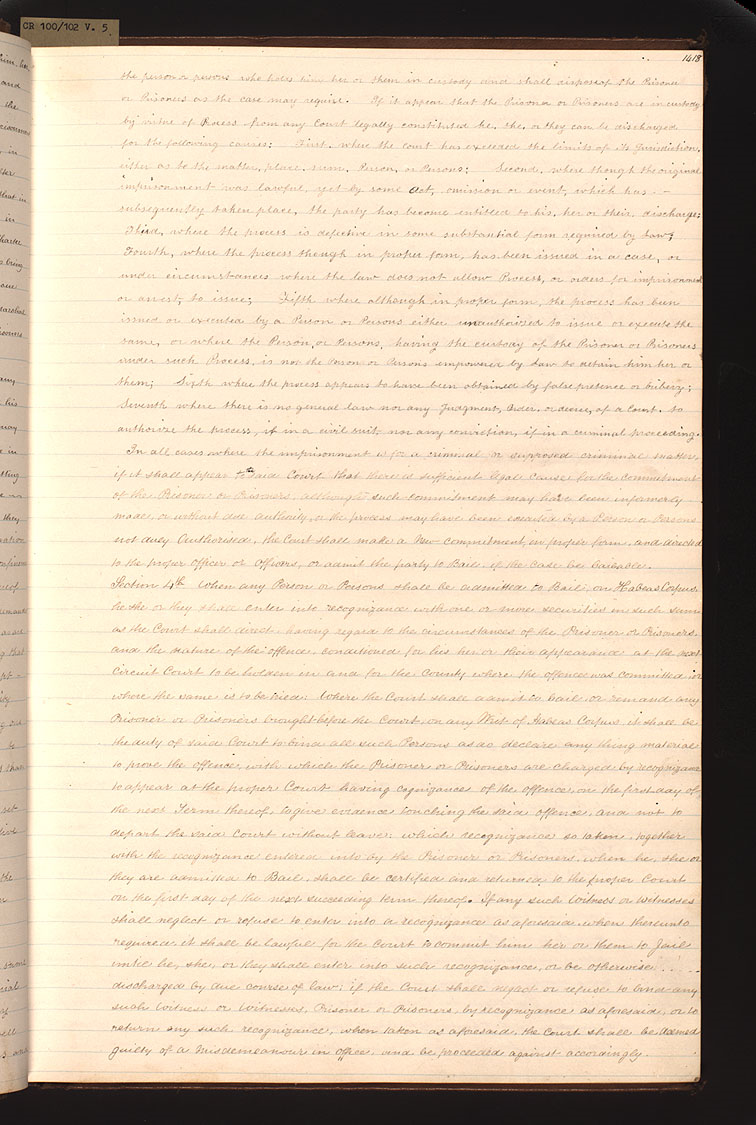 CR 100/102 V. 5
1418
the person or persons who holds him her or them in custody and shall dispose of the Prisoner
or Prisoners as the case may require. If it appear that the Prisoner or Prisoners are in custody
by virtue of Process from any Court legally constituted he, she, or they can be discharged
for the following causes: First, where the court has exceeded the limits of its Jurisdiction,
either as to the matter, place, sum, Person, or Persons; Second, where though the original
imprisonment was lawful, yet by some act, omission or event, which has -
subsequently taken place, the party has become entitled to his, her or their discharge;
Third, where the process is defective in some substantial form required by Law;
Fourth, where the process though in proper form, has been issued in a case, or
under circumstances where the law does not allow Process, or orders for imprisonment
or arrest, to issue; Fifth where although in proper form, the process has been
issued or executed by a Person or Persons either unauthorized to issue or execute the
same, or where the Person, or Persons, having the custody of the Prisoner or Prisoners
under such Process, is not the Person or Persons empowered by Law to detain him her or
them; Sixth where the process appears to have been obtained by false pretence or bribery;
Seventh where there is no general law nor any Judgment, Order, or decree, of a Court, to
authorize the process, if in a civil suit, nor any conviction, if in a criminal proceeding.
In all cases where the imprisonment is for a criminal or supposed criminal matter,
if it shall appear to the said Court that there is sufficient legal cause for the commitment
of the Prisoner or Prisoners, although such commitment may have been informerly
made, or without due authority, or the process may have been executed by a Person or Persons
not duly Authorised, the Court shall make a New commitment, in proper form, and directed
to the proper Officer or Officers, or admit the party to Bail, if the case be bailable.
Section 4th When any Person or Persons shall be admitted to Bail, on Habeas Corpus,
he she or they shall enter into recognizance with one or more securities in such sum
as the Court shall direct, having regard to the circumstances of the Prisoner or Prisoners,
and the nature of the offence, conditioned for his her or their appearance at the next
circuit Court to be holden in and for the County where the offence was committed or
where the same is to be tried; Where the Court shall admit to bail, or remand any
Prisoner or Prisoners brought before the Court, on any Writ of Habeas Corpus it shall be
the duty of said Court to bind all such Persons as do declare any thing material
to prove the offence, with which the Prisoner or Prisoners are charged by recognizance
to appear at the proper Court having cognizances of the offence, on the first day of
the next Term thereof, to give evidence touching the said offence, and not to
depart the said Court without leave; which recognizance so taken, together
with the recognizance entered into by the Prisoner or Prisoners, when he, she or
they are admitted to Bail, shall be certified and returned, to the proper Court
on the first day of the next succeeding term thereof. If any such Witness or witnesses
shall neglect or refuse to enter into a recognizance as aforesaid, when thereunto
required, it shall be lawful for the Court to commit him her or them to Jail
until he, she, or they shall enter into such recognizance, or be otherwise
discharged by due course of law; if the Court shall neglect or refuse to bind any
such Witness or Witnesses, Prisoner or Prisoners, by recognizance as aforesaid, or to
return any such recognizance, when taken as aforesaid, the Court shall be deemed
guilty of a Misdemeanour in office, and be proceeded against accordingly.